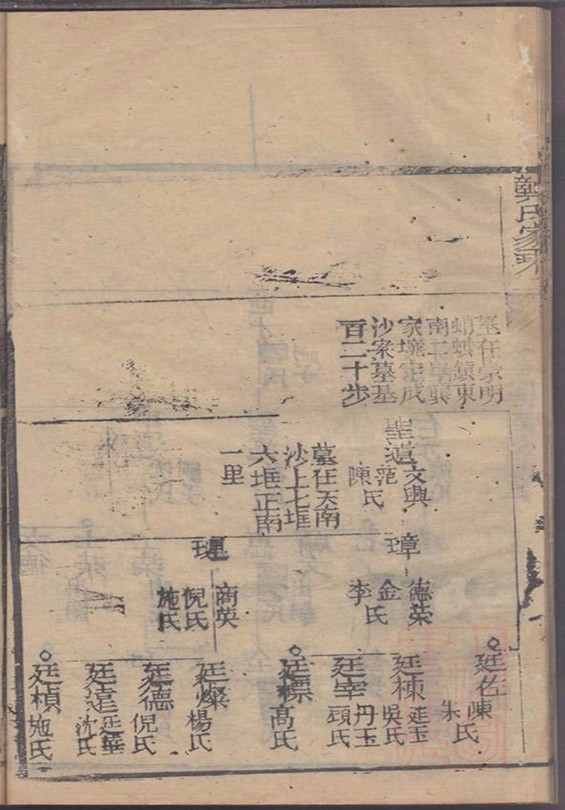 龔氏家乘
墓在崇明
蜻蜞鎮東
南
家壩
沙案墓基
百二十步
聖道
文興
范氏
陳
墓在天南
沙上七堆
六堆正南
一里
璋
德榮
金氏
李
璉
商英
倪氏
施氏
廷佐
陳氏
朱
廷楝
廷玉
吳氏
廷宰
丹玉
顧氏
廷標
高氏
廷燦
楊氏
廷德
倪氏
廷遠
廷華
沈氏
廷楨
施氏